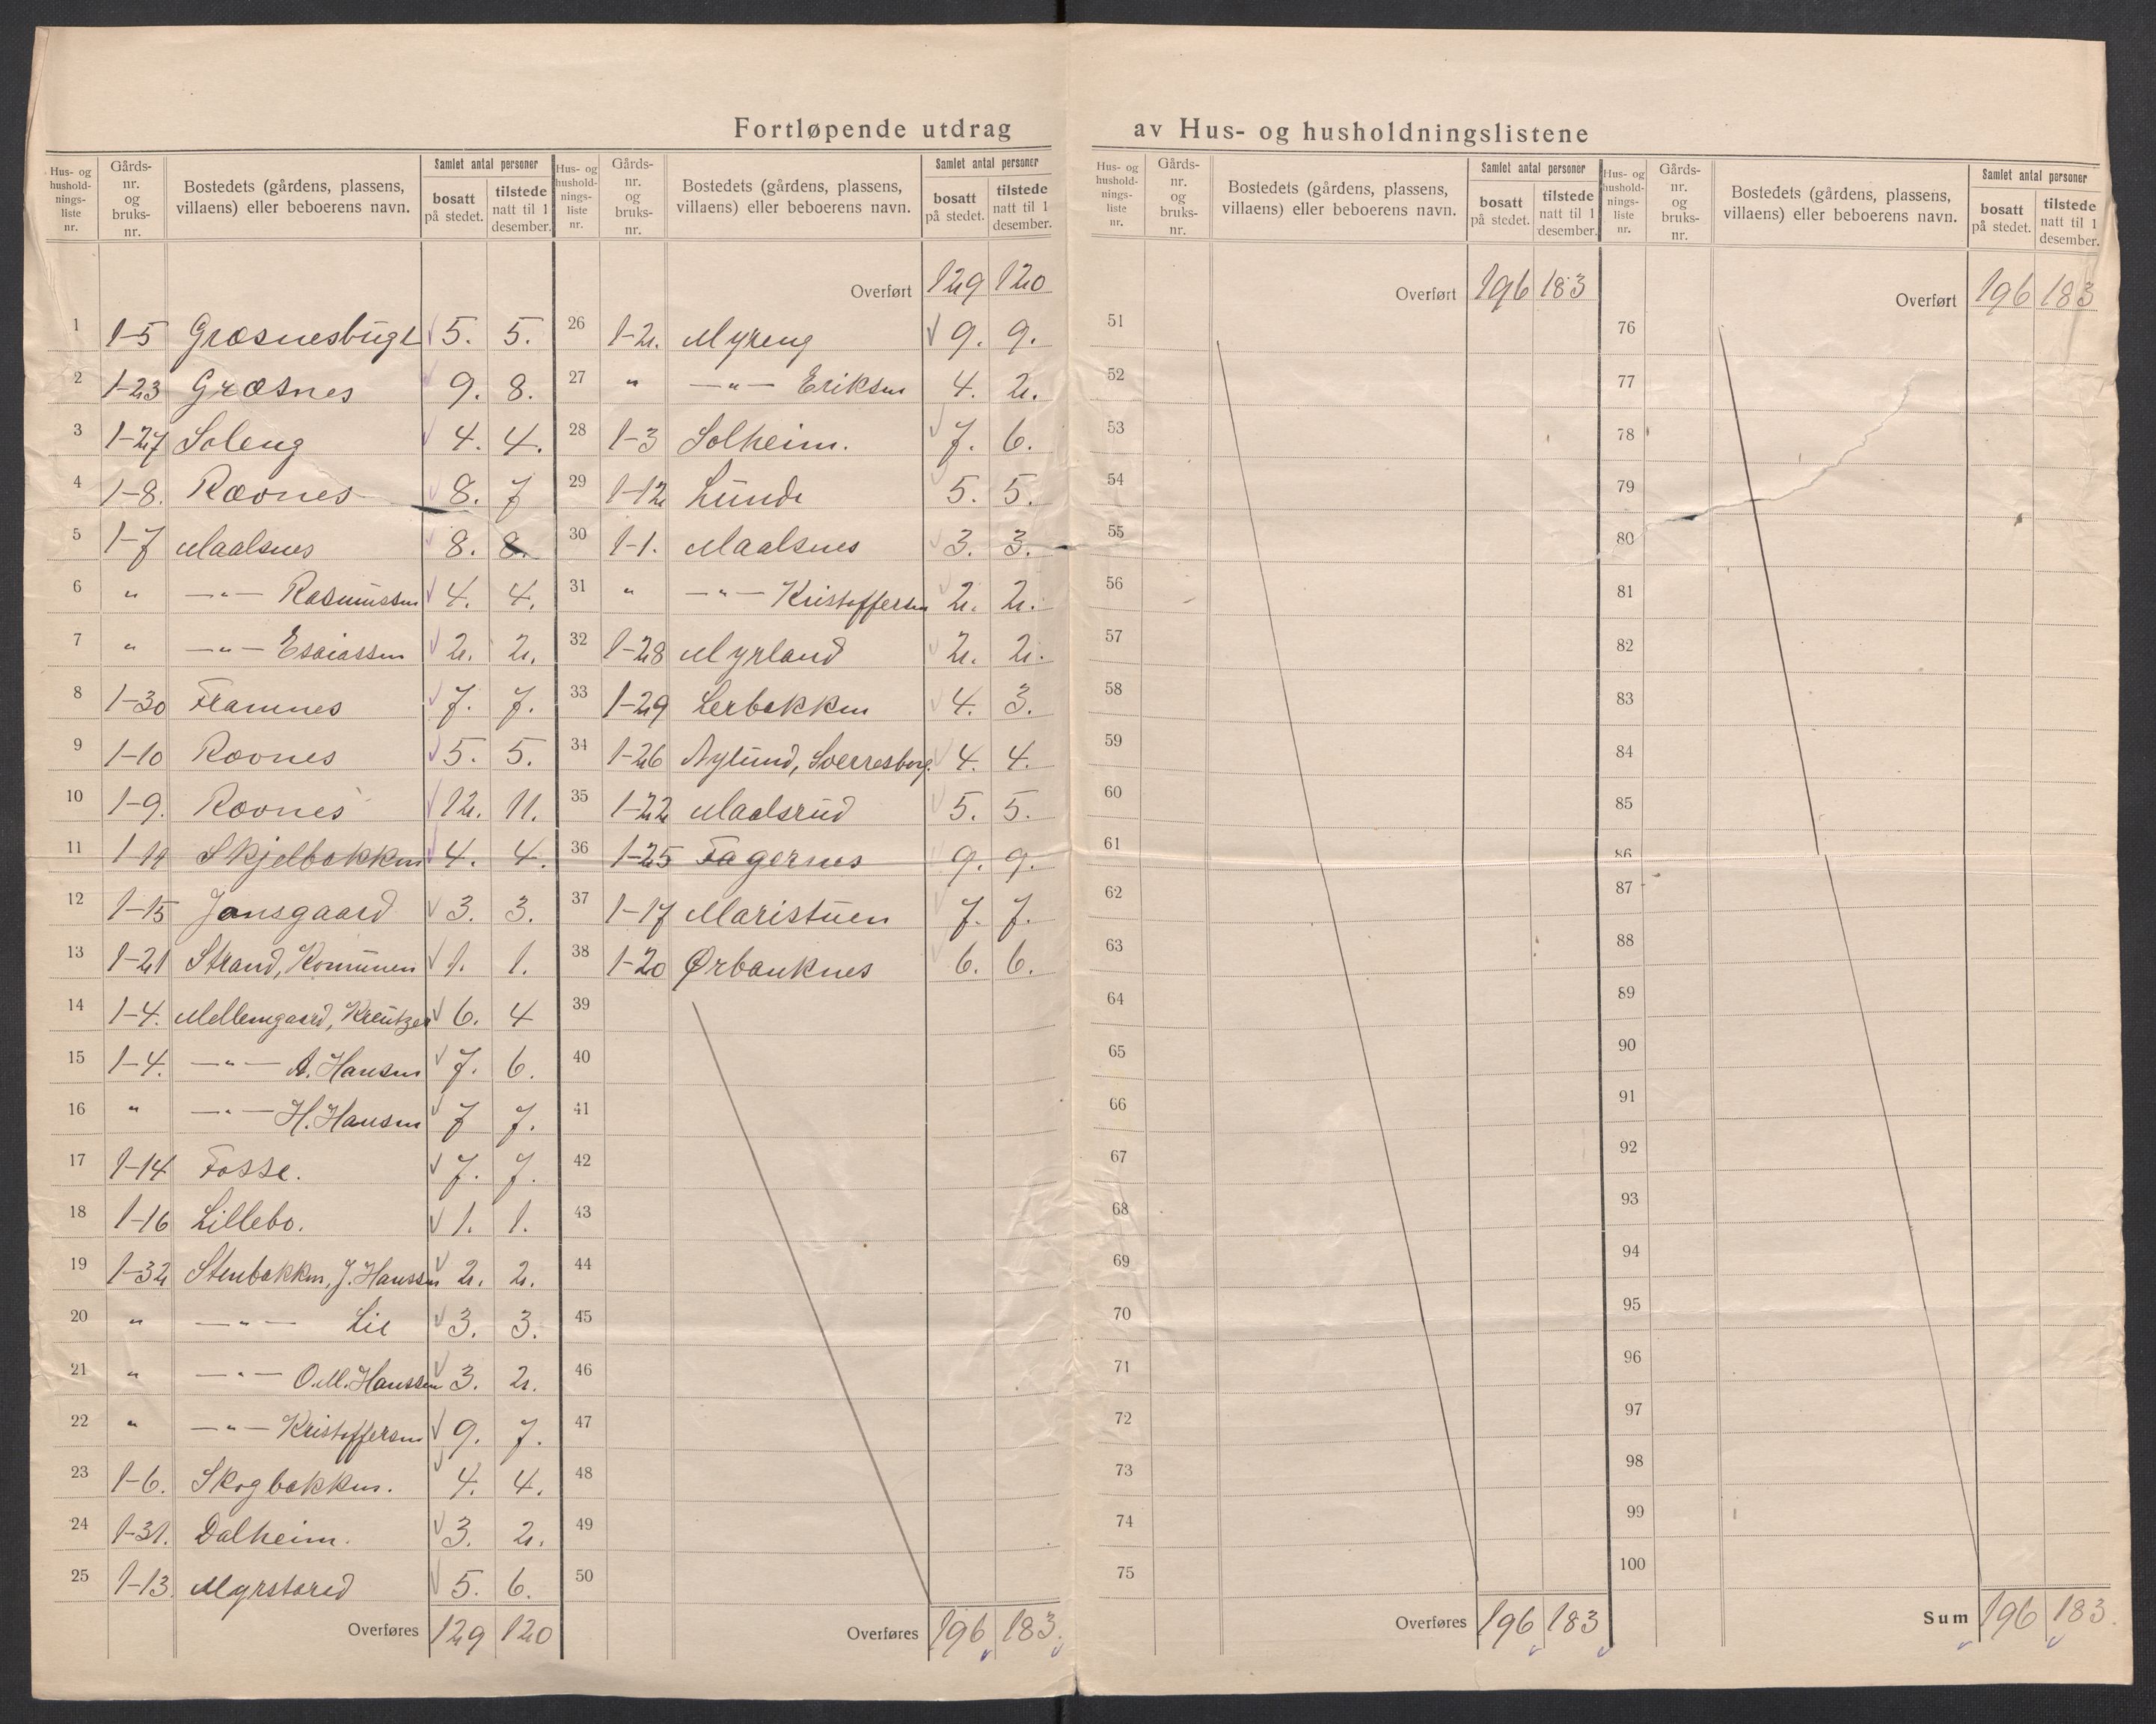 Fortløpende utdrag av Hus- og husholdningslistene
Hus- og hushold-nings-liste nr. | Gårds-nr. og bruks-nr. | Bostedets (gårdens, plassens, villaens) eller beboerens navn. | Samlet antal personer | bosatt på stedet. | tilstede natt til 1 desember.
1 1-5 Græsnesbugt 5. 5.
2 1-23 Græsnes 9. 8.
3 1-27 Soleng 4. 4.
4 1-8. Rævnes 8. 7
5 1-7 Maalsnes 8. 8.
6 " —"— Rasmussen 4. 4.
7 " —"— Esaiassen 2. 2.
8 1-30 Framnes 7. 7.
9 1-10 Rævnes 5. 5.
10 1-9. Rævnes 12. 11.
11 Skjelbakken 4. 4.
12 1-15 Jansgaard 3. 3.
13 1-21 Strand, Komunen 1. 1.
14 1-4. Mellemgaard, Kreutzer 6. 4
15 1-4. —"— A. Hansen 7. 6.
16 " —"— H. Hansen 7 7.
17 1-14 Fosse. 7. 7.
18 1-16 Lillebo. 1. 1.
19 1-32 Stenbakken, J. Hanssen 2. 2.
20 " —"— Lie 3. 3.
21 " —"— O.M. Hanssen 3. 2.
22 " —"— Kristoffersen 9. 7.
23 1-6. Skogbakken. 4. 4.
24 1-31. Dalheim. 3. 2.
25 1-13. 5. 6.
Overføres 129 120
Hus- og hushold-nings-liste nr. | Gårds-nr. og bruks-nr. | Bostedets (gårdens, plassens, villaens) eller beboerens navn. | Samlet antal personer | bosatt på stedet. | tilstede natt til 1 desember.
Overført 129 120
26 1-2. Myreng 9. 9.
27 " —"— Eriksen 4. 2.
28 1-3 Solheim. 7. 6.
29 1-12 Lunde 5. 5.
30 1-1. Maalsnes 3. 3.
31 " —"— Kristoffersen 2. 2.
32 1-28 Myrland 2. 2.
33 1-29 Lerbakken 4. 3.
34 1-26 Nylund, Sverresborg. 4. 4.
35 1-22 Maalsrud 5. 5.
36 1-25 Fagernes 9. 9.
37 1-17 Maristuen 7. 7.
38 1-20 Ørbauknes 6. 6.
39
40
41
42
43
44
45
46
47
48
49
50
Overføres 196 183.
Hus- og hushold-nings-liste nr. | Gårds-nr. og bruks-nr. | Bostedets (gårdens, plassens, villaens) eller beboerens navn. | Samlet antal personer | bosatt på stedet. | tilstede natt til 1 desember.
Overført 196 183
51
52
53
54
55
56
57
58
59
60
61
62
63
64
65
66
67
68
69
70
71
72
73
74
75
Overføres 196 183
Hus- og hushold-nings-liste nr. | Gårds-nr. og bruks-nr. | Bostedets (gårdens, plassens, villaens) eller beboerens navn. | Samlet antal personer | bosatt på stedet. | tilstede natt til 1 desember.
Overført 196 183
76
77
78
79
80
81
82
83
84
85
86
87
88
89
90
91
92
93
94
95
96
97
98
99
100
Sum 196 183.